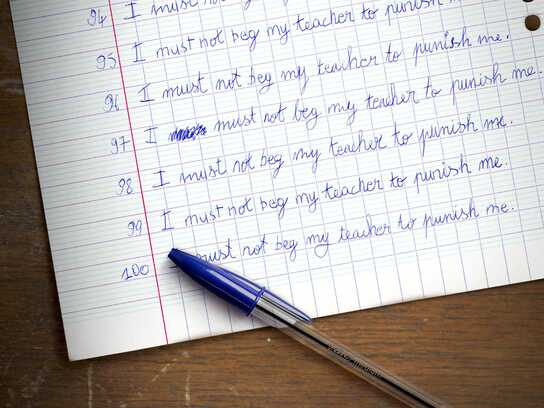 94 I must not beg my teacher to punish
95 I must not beg my teacher to punish me.
96 I must not beg my teacher to punish me.
97 I must not beg my teacher to punish me.
98 I must not beg my teacher to punish me.
99 I must not beg my teacher to punish me.
100 I must not beg my teacher to punish me.